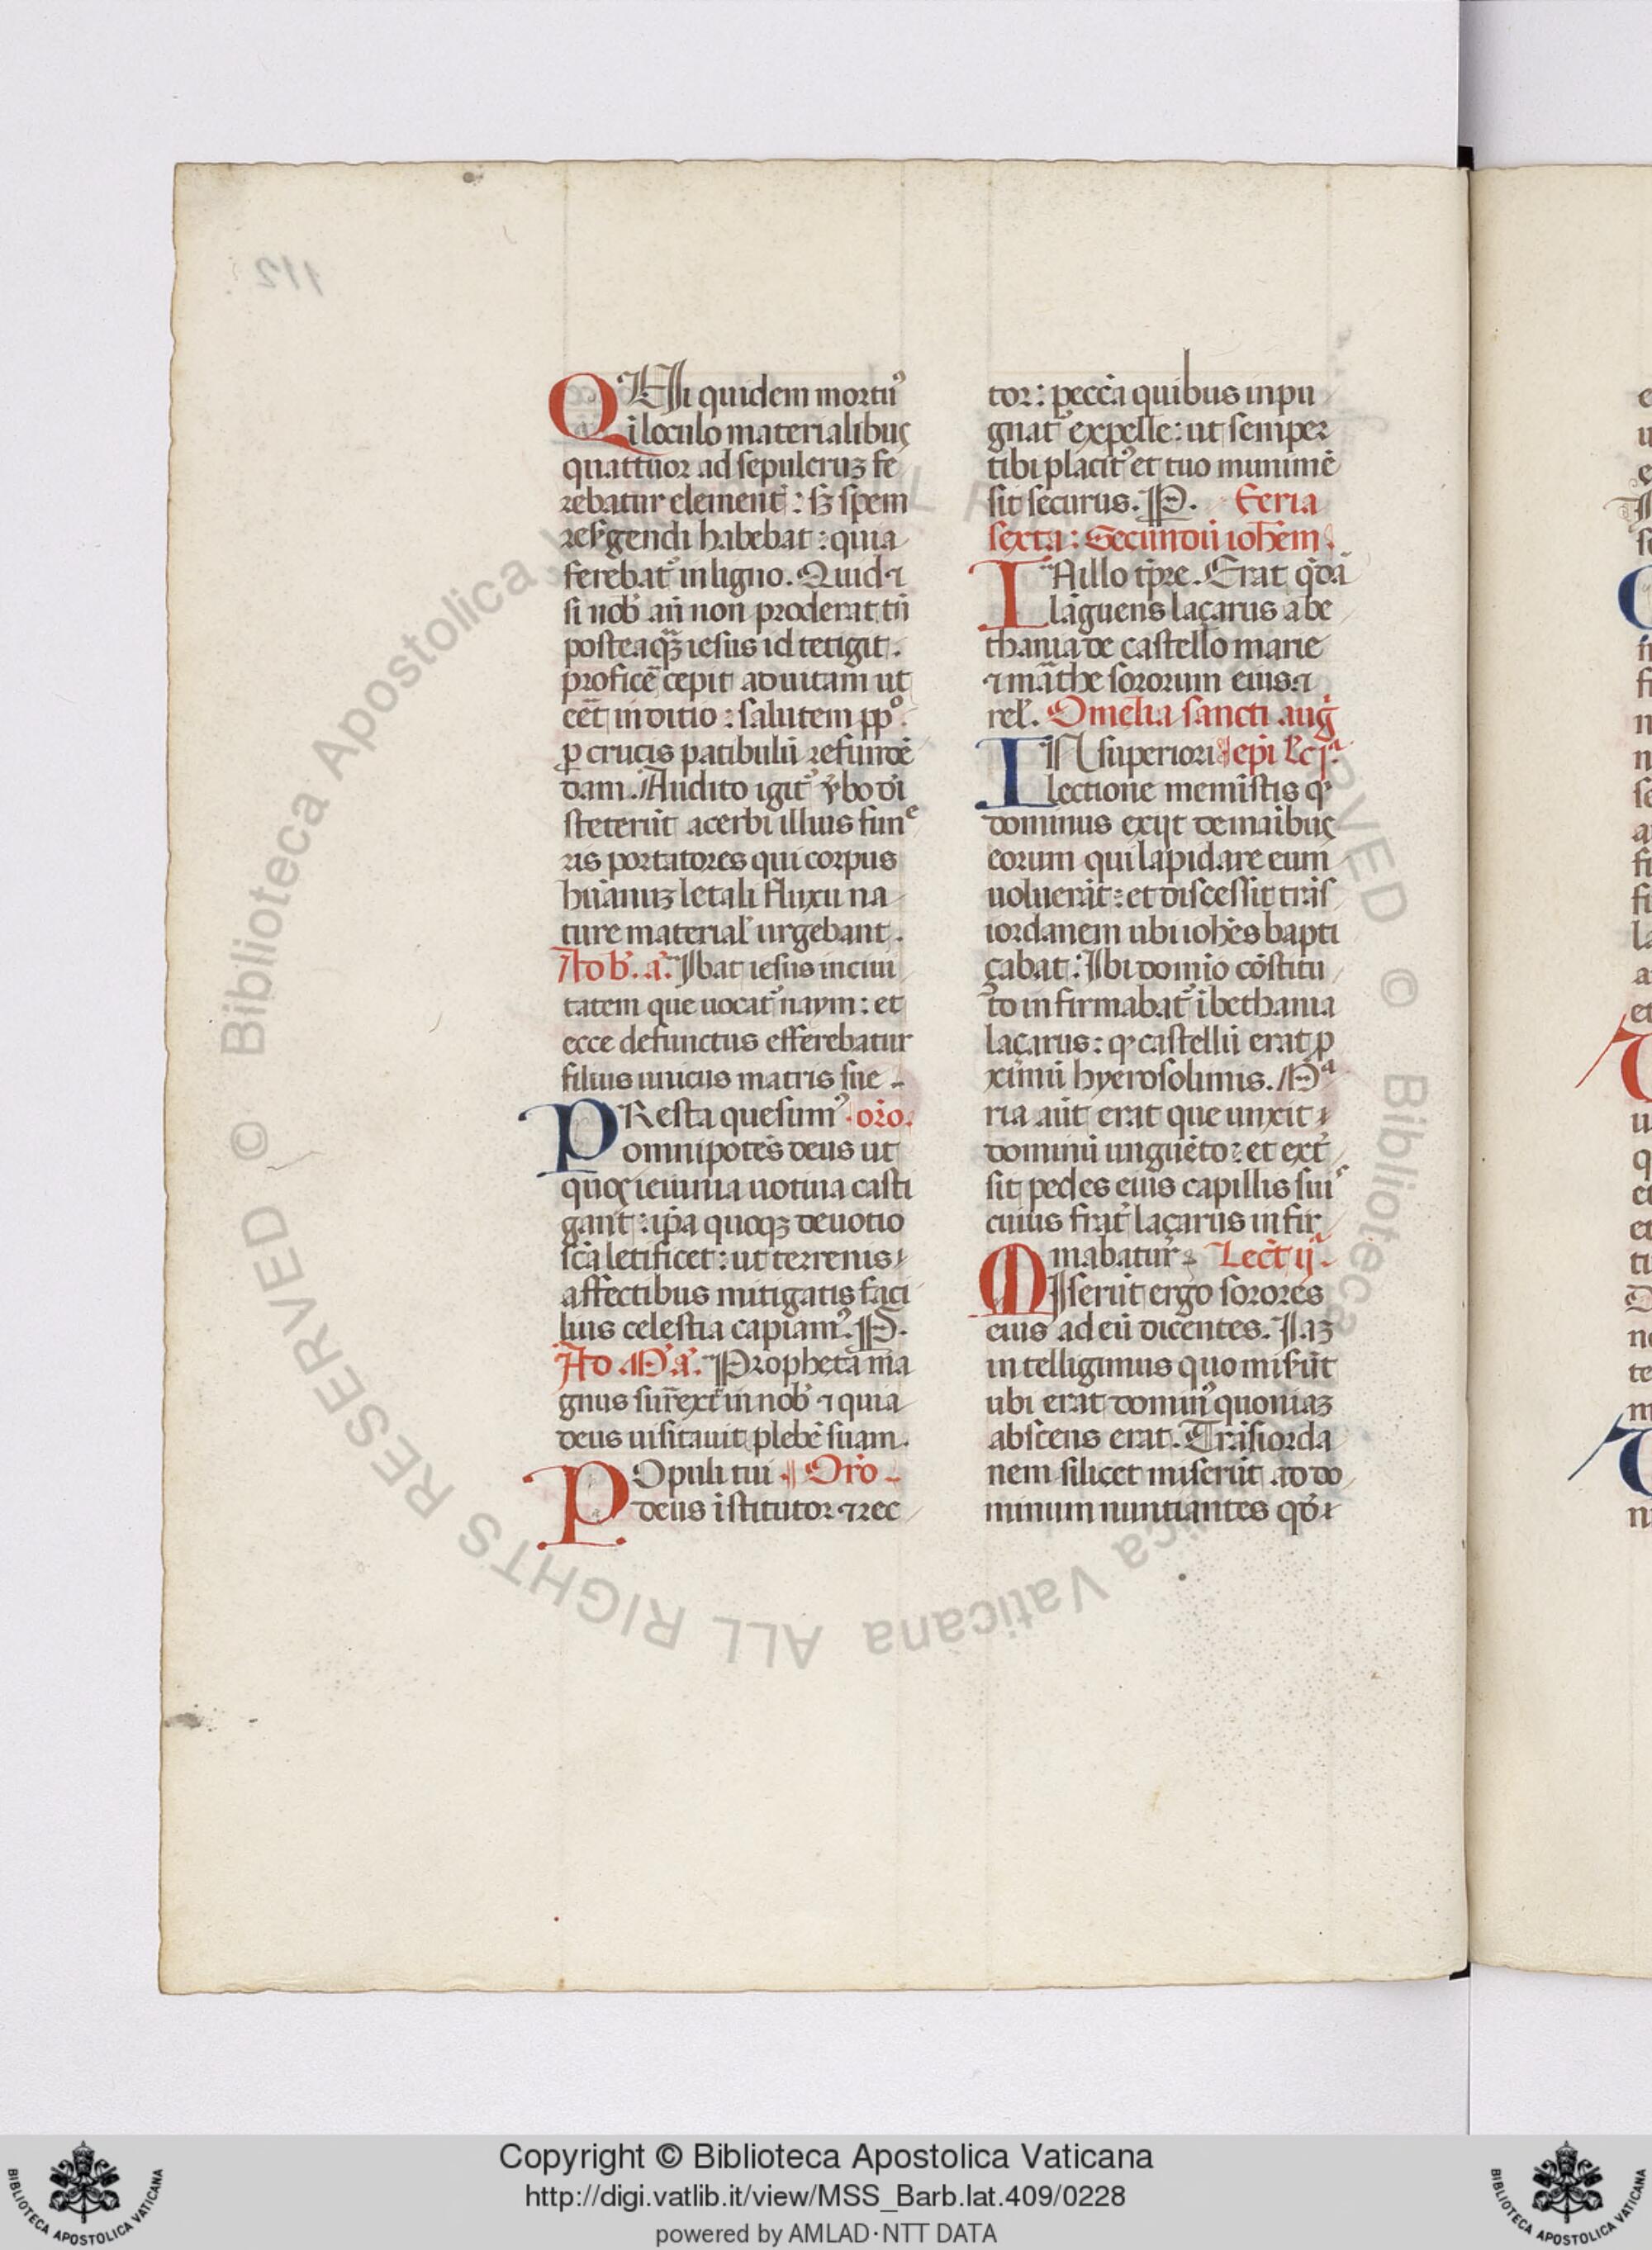 QUi quidem mortu᷒
i loculo materialibuς
quattuor ad sepulcruꝫ fe
rebatur element᷒: sꝫ spem
res᷒gendi habebat: quia
ferebat᷒ in ligno. Quid ⁊
si nob᷒ an̄ non proderat tn̄
posteaqꝫ iesus id tetigit.
proficē cepit ad uitam ut
cēt inditio: salutem ppᵒ.
ꝑ crucis patibulū refundē
dam. Audito igit᷒ v̓bo dī
steterūt acerbi illius funᵉ
ris portatores qui corpus
hūanuꝫ letali fluxu na
ture material᷒ urgebant.
Ad b̄. a᷒. Ibat iesus in ciui
tatem que uocat᷒ naym: et
ecce defunctus efferebatur
filius unicus matris sue
PResta quesum᷒ . oro.
omnipotēs deus ut
quoς ieiunia uotiua casti
gant: ip̄a quoqꝫ deuotio
sc̄a letificet: ut terrenis
affectibus mitigatis faci
lius celestia capiam᷒. P.
Ad M̄. a᷒. Propheta ma
gnus surrexit in nob᷒ ⁊ quia
deus uisitauit plebē suam.
POpuli tui Oro
deus īstitutor ⁊ rec
tor: peccā quibus inpu
gnat᷒ expelle: ut semper
tibi placit᷒ et tuo munimē
sit securus. P. Feria
sexta: Secundū ioh̄em.
IN illo tp̄re. Erat q̄dā
lāguens laçarus a be
thania de castello marie
⁊ māthe sororum eius. ⁊
rel᷒. Omelia sancti aug̓
IN superiori ep̄i lc̄ jᵃ.
lectione memistis ꝙ
dominus exijt de maībuς
eorum qui lapidare eum
uoluerāt: et discessit trās
iordanem ubi ioh̄es bapti
çabat. Ibi domīo cōstitu
to infirmabat᷒ ī bethania
laçarus: ꝙ castellū erat ꝓ
ximū hyerosolimis. Mᵃ
ria aūt erat que unxit
dominū unguēto: et ext̓
sit pedes eius capillis suiˢ
cuius frat᷒ laçarus infir
mabatur. Lect̄ ijᵃ.
MIserūt ergo sorores
eius ad eū dicentes. Iaꝫ
intelligimus quo mis̓ūt
ubi erat domin᷒ quoniaꝫ
abscens erat. Trāsiorda
nem silicet miserūt ad do
minum nuntiantes qd̓
112
Copyright © Biblioteca Apostolica Vaticana
http://digi.vatlib.it/view/MSS_Barb.lat.409/0228
powered by AMLAD·NTT DATA
BIBLIOTECA APOSTOLICA VATICANA
BIBLIOTECA APOSTOLICA VATICANA
© Biblioteca Apostolica Vaticana ALL RIGHTS RESERVED